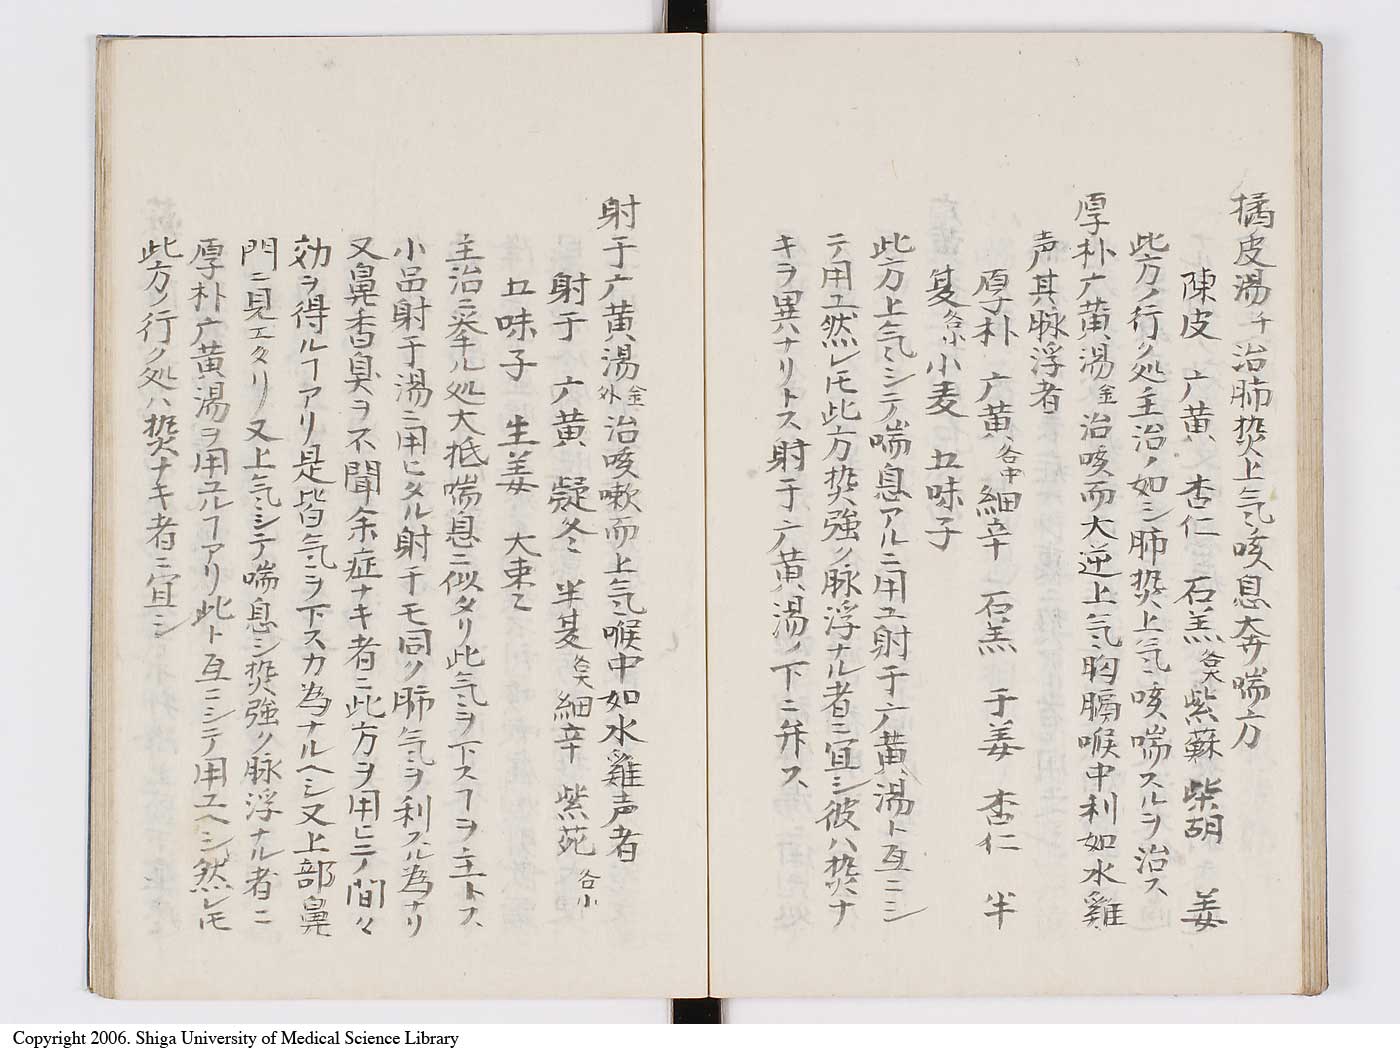 橘皮湯千治肺熱上気咳息奔喘方
陳皮 广黄 杏仁 石羔各大紫蘇 柴胡 姜
此方ノ行ク処主治ノ如シ肺熱上気咳喘スルヲ治ス
厚朴广黄湯金治咳而大逆上気胸膈喉中利如水雞
声其脉浮者
厚朴 广黄各中細辛 石羔 干姜 杏仁 半
夏各小小麦 五味子
此方上気シテ喘息アルニ用ユ射干广黄湯ト互ニシ
テ用ユ然レ𪜈此方熱強ク脉浮ナル者ニ宜シ彼ハ熱ナ
キヲ異ナリトス射干广黄湯ノ下ニ弁ス
射干广黄湯金外治咳嗽而上気喉中如水雞声者
射干 广黄 凝冬 半夏各大細辛 紫苑各小
五味子 生姜 大棗
主治ニ挙ル処大抵喘息ニ似タリ此気ヲ下スヿヲ主トス
小品射干湯ニ用ヒタル射干モ同ク肺気ヲ利スル為ナリ
又鼻香臭ヲ不聞余症ナキ者ニ此方ヲ用ヒテ間々
効ヲ得ルヿアリ是皆気ヲ下スカ為ナルヘシ又上部鼻
門ニ見エタリ又上気シテ喘息シ熱強ク脉浮ナル者ニ
厚朴广黄湯ヲ用ユルヿアリ此ト互ニシテ用ユヘシ然レ𪜈
此方ノ行ク処ハ熱ナキ者ニ宜シ
Copyright 2006. Shiga University of Medical Science Library